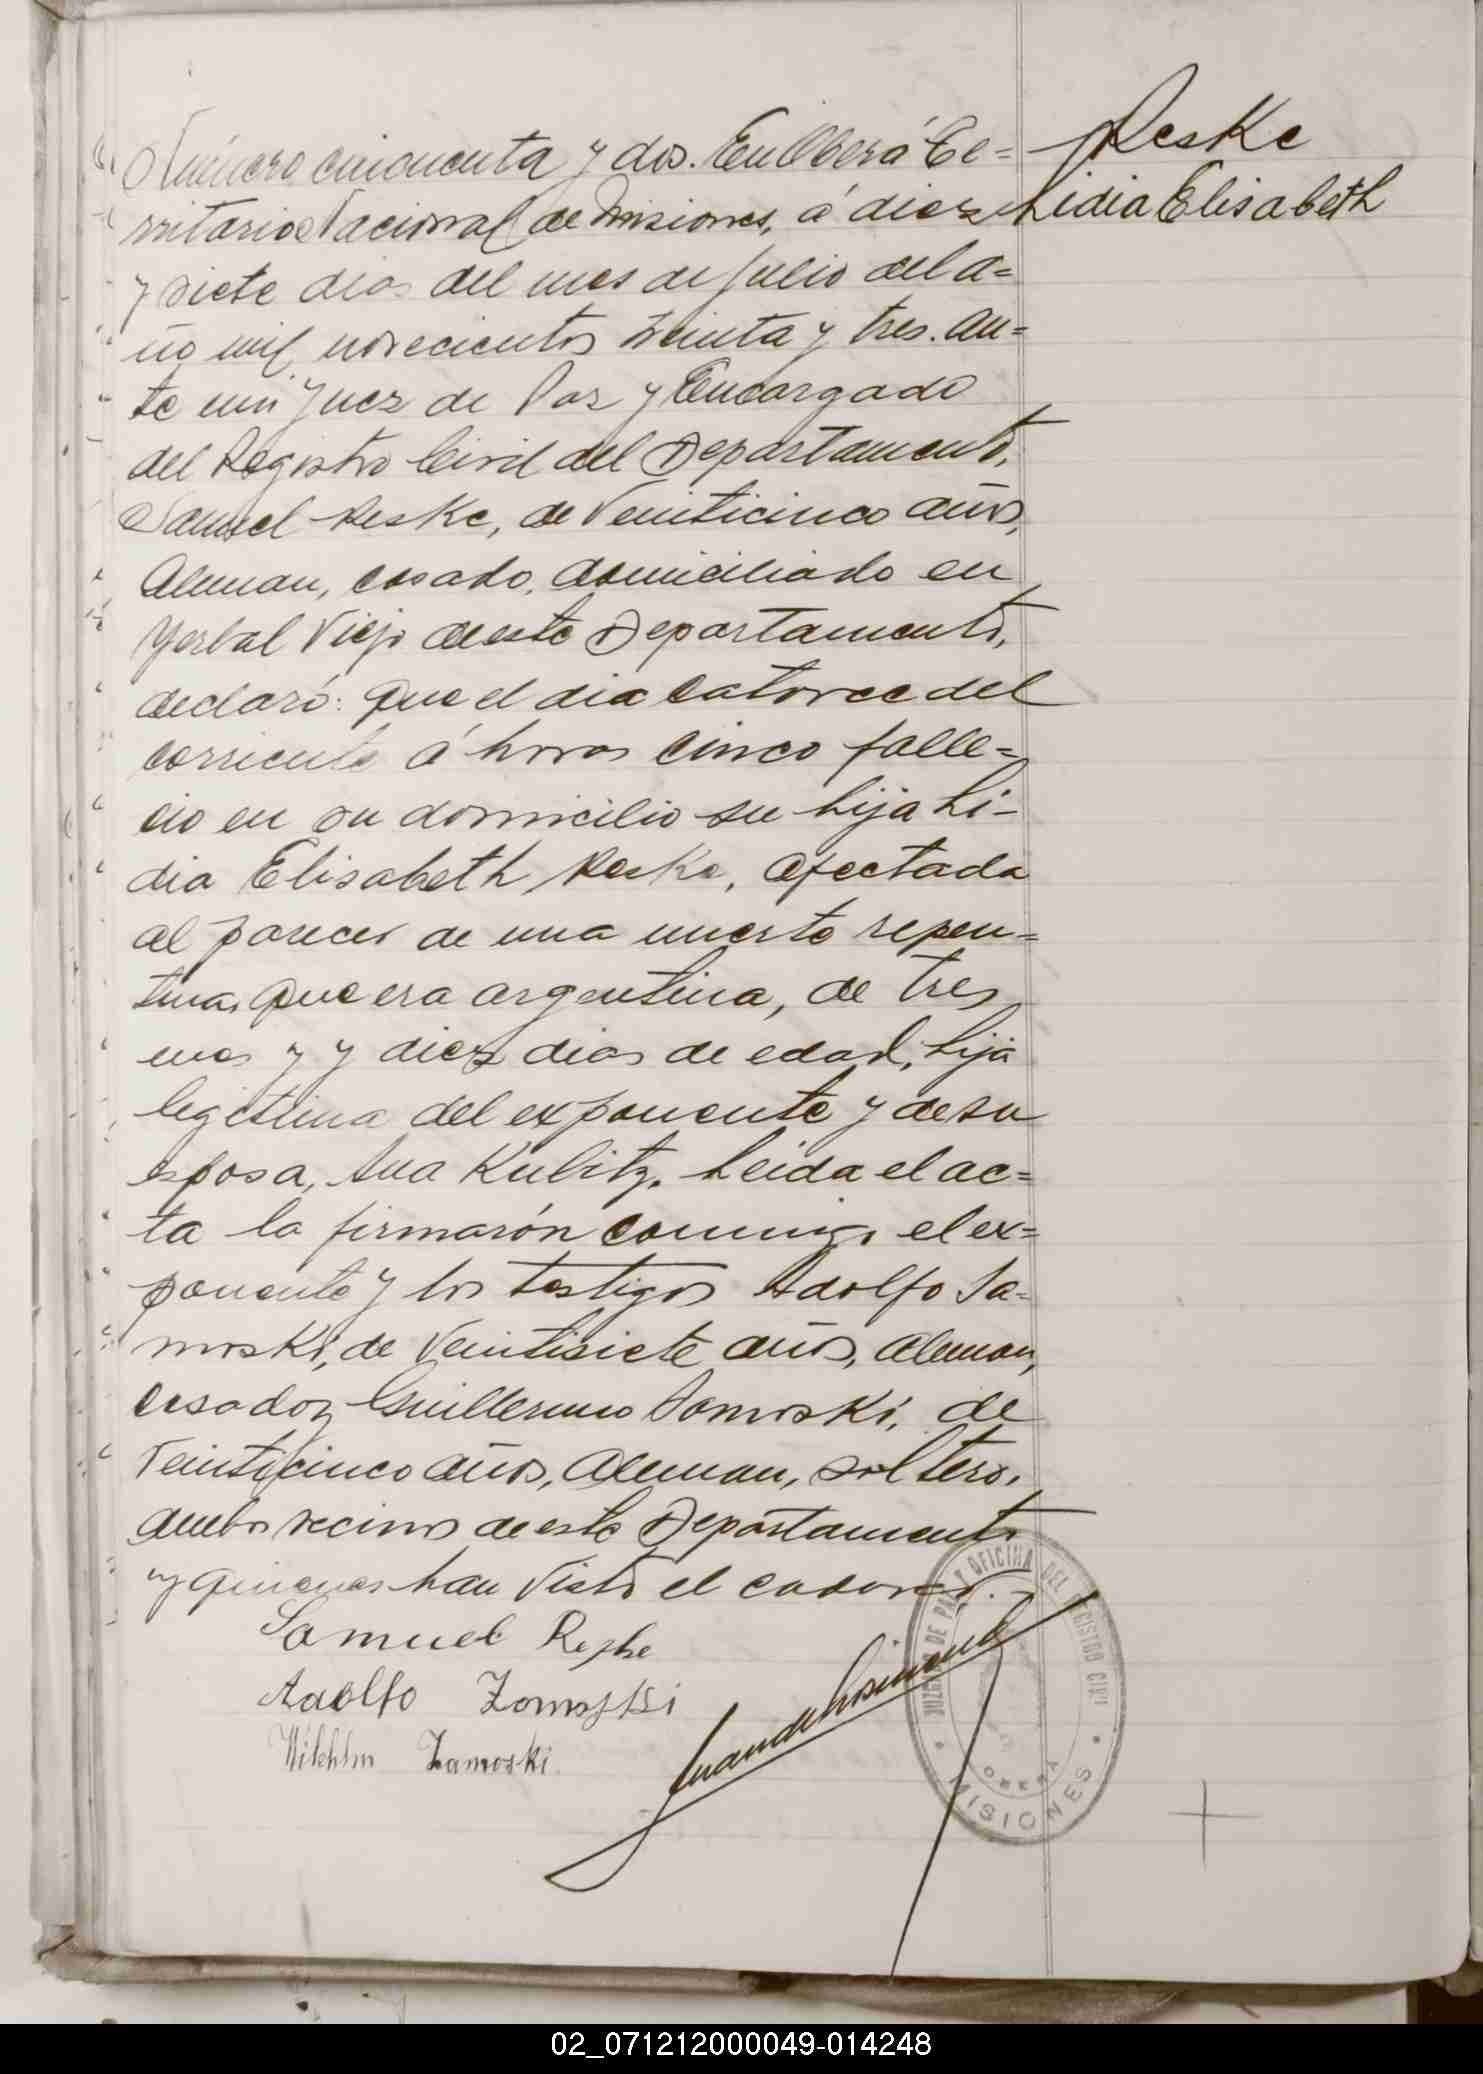 Reske
Lidia Elisabeth
Número cincuenta y dos. En Oberá Te=
rritorio Nacional de Misiones, á diez
y siete dias del mes de julio del a=
ño mil novecientos treinta y tres. An=
te mi Juez de Paz y Encargado
del Registro Civil del Departamento,
Samuel Reske, de Veinticinco años,
Aleman, casado, domiciliado en
Yerbal Viejo de este Departamento,
declaró: Que el dia catorce del
corriente á horas cinco falle=
cio en su domicilio su hija Li-
dia Elisabeth Reske, afectada
al parecer de una muerte repen=
tina, Que era argentina, de tres
mes y y diez dias de edad, hija
legitima del exponente y de su
esposa, Ana Kulitz. Leida el ac=
ta la firmarón conmigo el ex=
ponente y los testigos Adolfo Sa-
moski, de Veintisiete años, Aleman,
casado y Guillermo Samoski, de
Veinticinco años, Aleman, soltero,
ambos vecinos de este Departamento
y quienes han visto el cadaver.
Samuel Reske
Adolfo Zamoski
Wilhlm Zamoski
JUZGADO DE PAZ Y OFICINA DEL REGISTRO CIVIL
OBERA
MISIONES
02_071212000049-014248